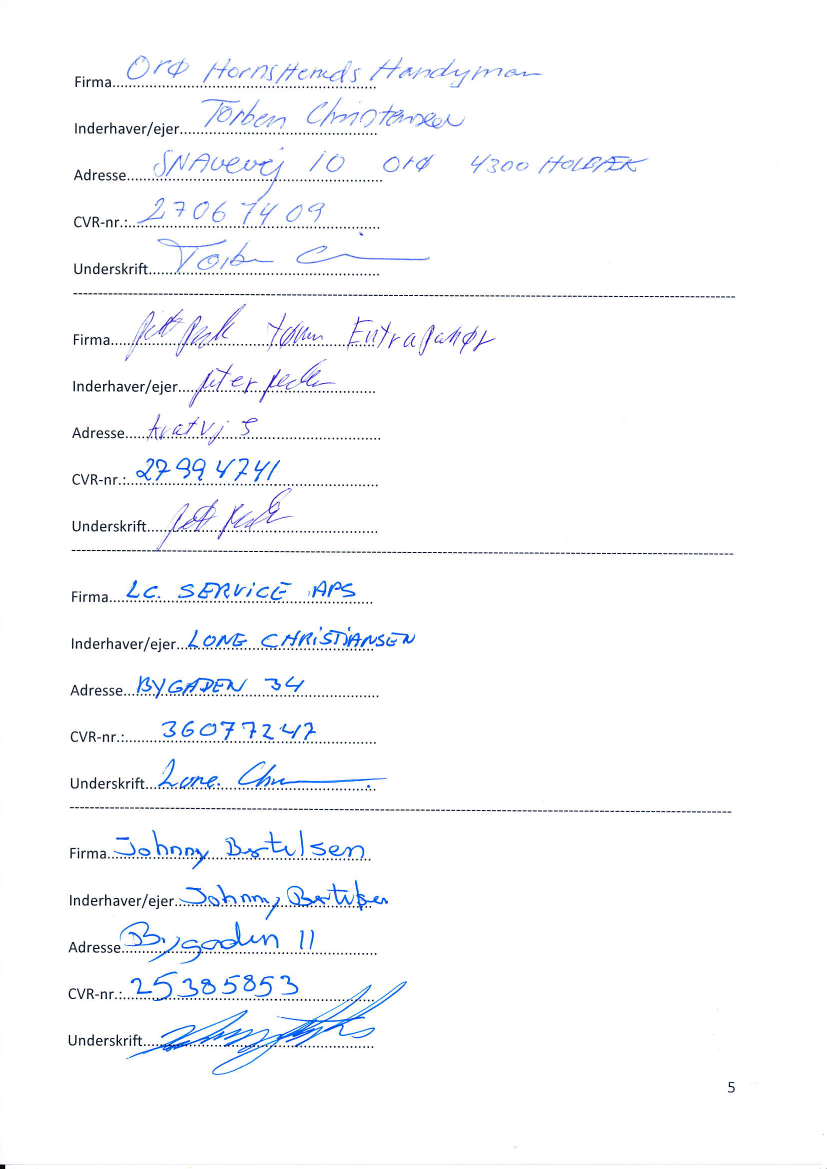 Firma Orø HornsHerreds Handyman
Inderhaver/ejer Torben Christensen
Adresse Orø 4300 HOLBÆK
CVR-nr.: 27067409
Underskrift Torben
Firma Entreprenør
Inderhaver/ejer peter
Adresse 5
CVR-nr.: 27994741
Underskrift
Firma LC. SERVICE APS
Inderhaver/ejer LONE CHRISTIANSEN
Adresse BYGADEN 34
CVR-nr.: 36077247
Underskrift Lone. Chr
Firma Johnny Bertelsen
Inderhaver/ejer Johnny Bertelsen
Adresse Bygaden 11
CVR-nr.: 25385853
Underskrift
5